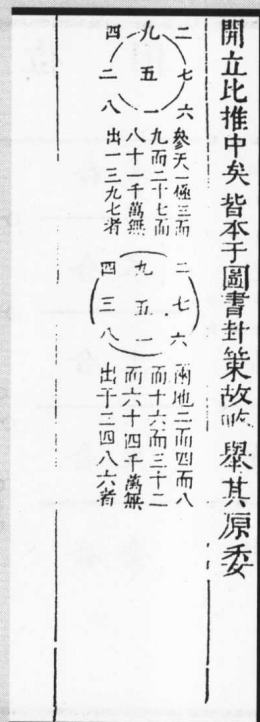 開立比推中矣皆本于圖書封策故舉其原委
二七六
九五一
四二八
參天一極三而
九而二十七而
八十一千萬無
出一三九七者
二七六
九五一
四三八
兩地二而四而八
而十六而三十二
而六十四千萬無
出于二四八六者